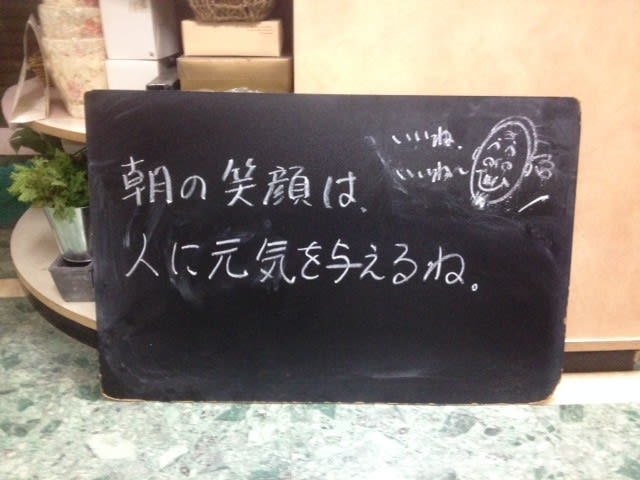 朝の笑顔は、
人に元気を与えるね。
いいね、
いいね〜